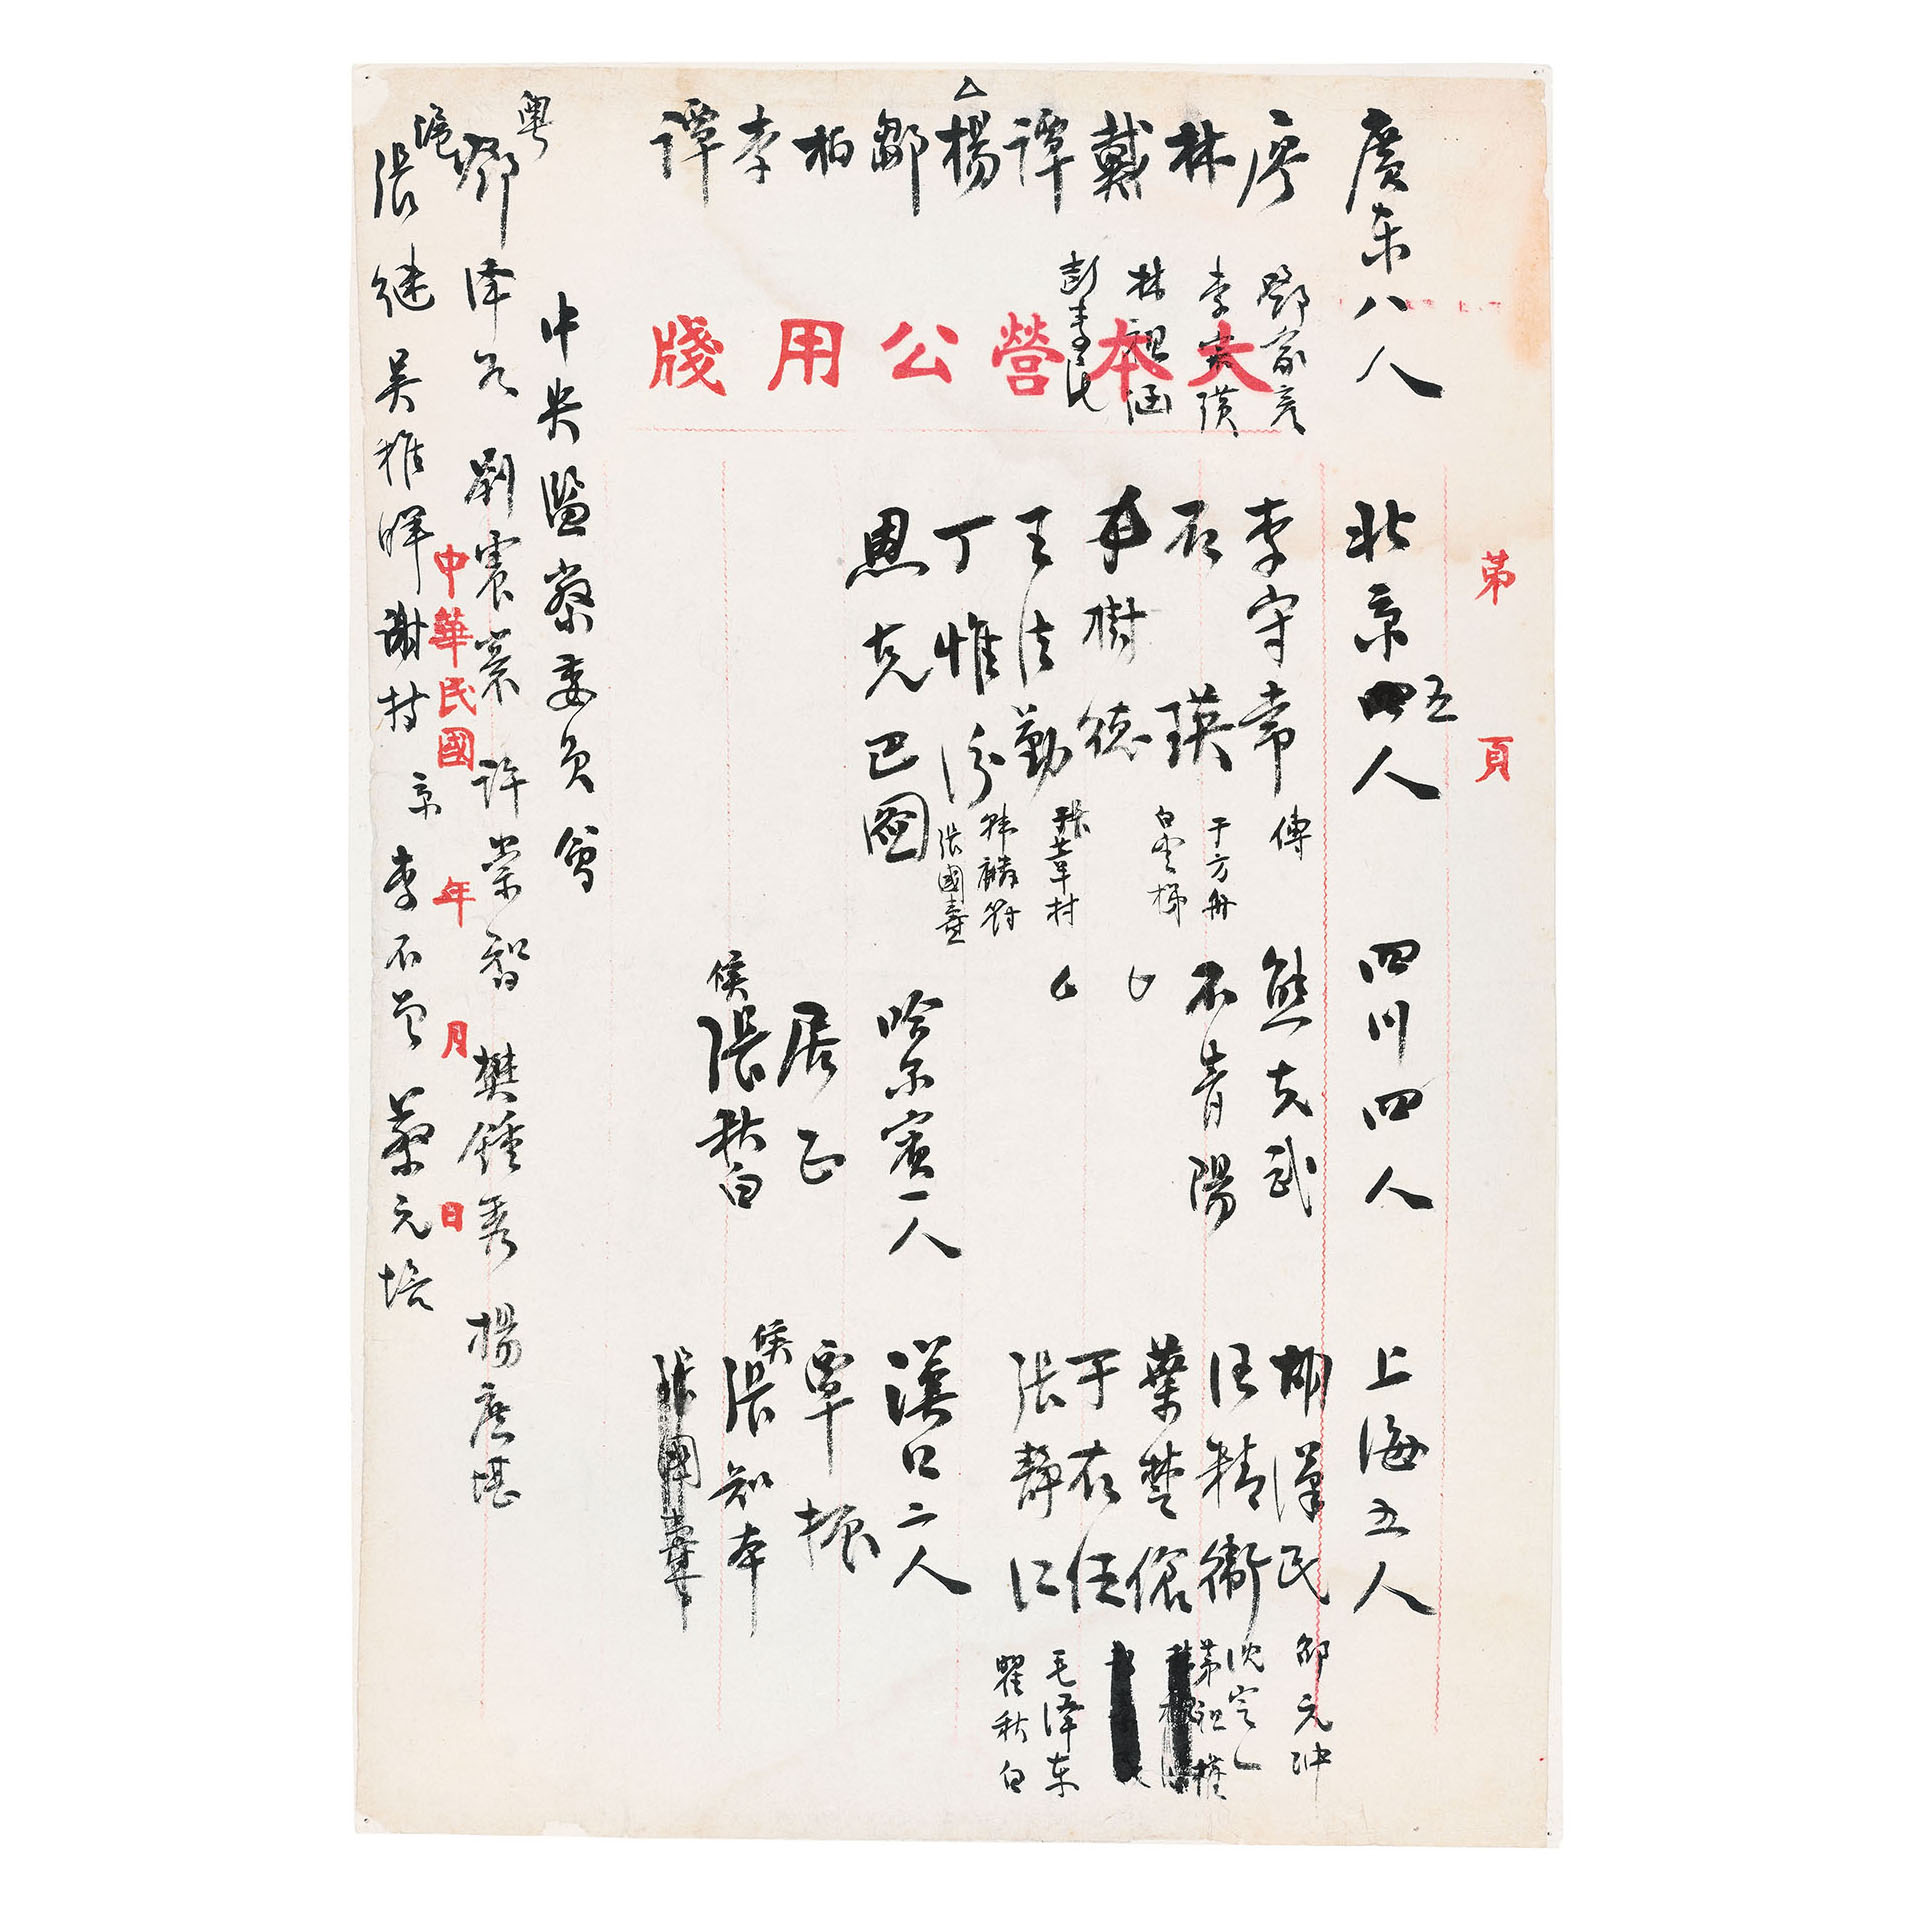 大本營公用牋
第 頁
廣东八人
廖
林
戴
譚
楊
鄒
柏
李
譚
鄧家彦
林祖涵
彭素民
北京四五人
李守常
石瑛
于樹德
王法勤
丁惟汾
恩克巴图
傅
于方舟
白雲梯
張葦村
韩麟符
張國燾
四川四人
熊克武
石青陽
哈尔賓一人
居正
候
張秋白
上海五人
胡漢民
汪精衛
葉楚傖
于右任
張静江
邵元冲
沈定一
茅祖權
毛泽东
瞿秋白
漢口二人
覃振
候
張知本
張國燾
中央監察委员會
粤
鄧泽如 刘震寰 许崇智 樊鍾秀 楊庶堪
滬
張继 吴稚暉 谢持 京 李石曾 蔡元培
中華民國 年 月 日